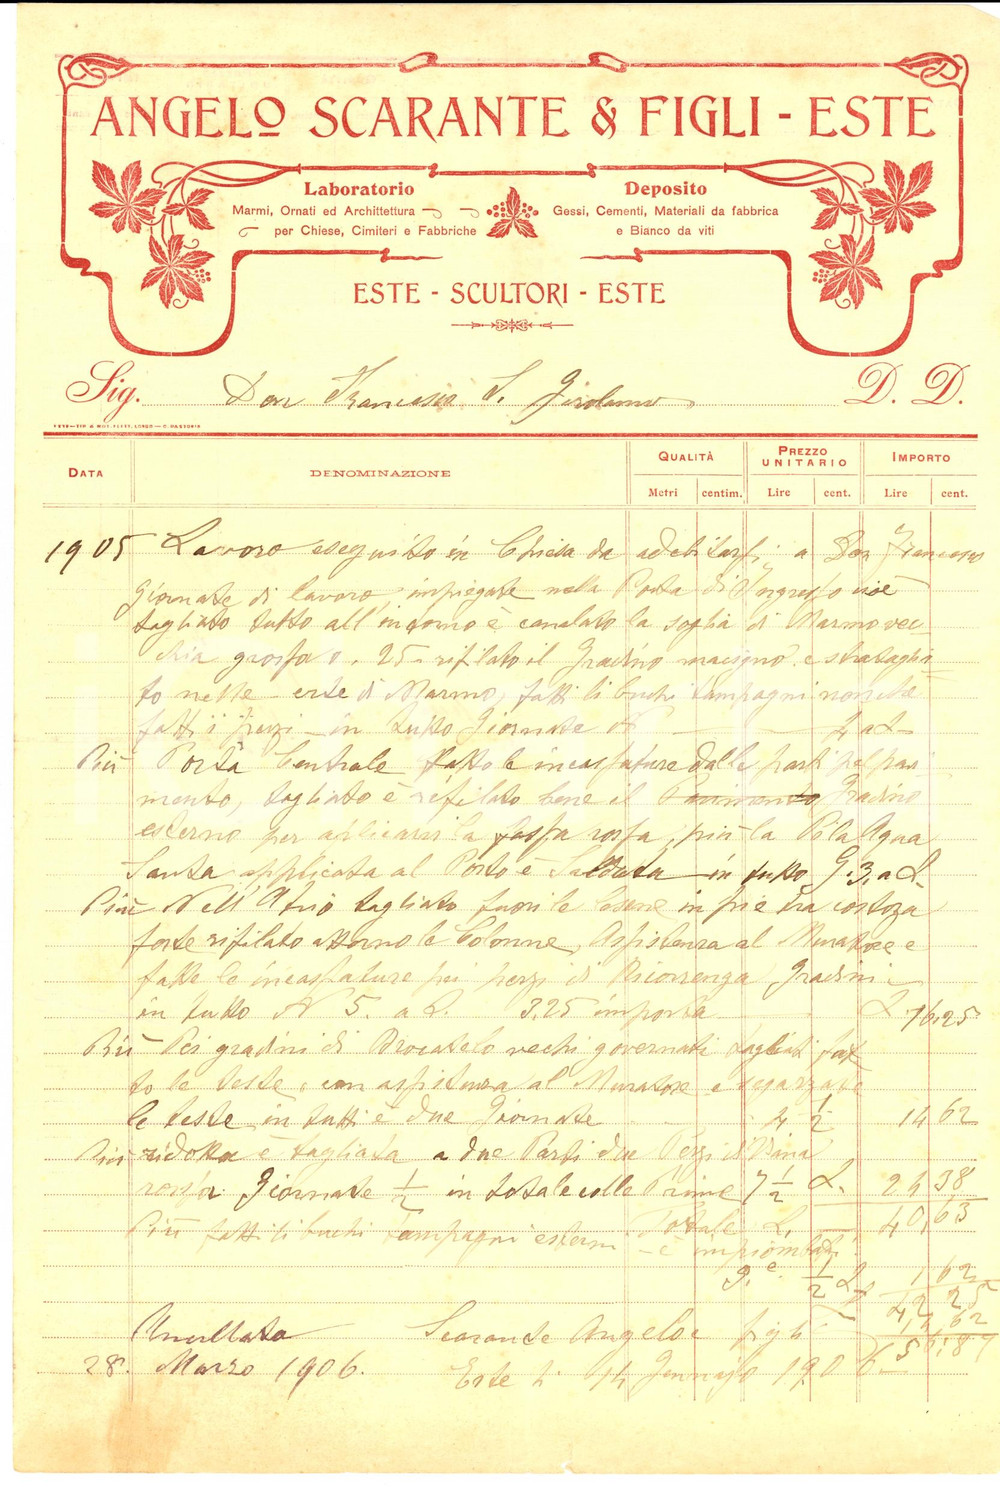 ANGELO SCARANTE & FIGLI - ESTE
Laboratorio
Marmi, Ornati ed Archittettura
per Chiese, Cimiteri e Fabbriche
Deposito
Gessi, Cementi, Materiali da fabbrica
e Bianco da viti
ESTE - SCULTORI - ESTE
Sig. Don Francesco S. Girolamo D. D.
DATA DENOMINAZIONE QUALITÀ PREZZO UNITARIO IMPORTO
Metri centim. Lire cent. Lire cent.
1905 Lavoro eseguito in Chiesa da adebitarsi a Don Francesco
Giornate di lavoro impiegate nella Porta di Ingresso cioè
tagliato tutto all'intorno è canalato la soglia di Marmo vec
chia grossa 0.25 rifilato il Gradino macigno e
to nelle erte di Marmo, fatti li buchi
fatti i pezzi in tutto Giornate N 4 a L
Più Porta Centrale fatto le incassature dalle parti pel pavi
mento, tagliato è rifilato bene il Pavimento Gradino
esterno per aplicarvi la fassa rossa, più la Pila Aqua
Santa applicata al Posto è Saldata in tutto G. 3, a L.
Più Nell'Atrio tagliato fuori le in pietra costoza
forte rifilato attorno le Colonne, Assistenza al Muratore e
fatte le incassature pei pezzi di Gradini
in tutto N 5. a L. 3.25 importa L 16,25
Più Pei gradini di Brocatelo vechi governati tagliati fat
to le teste, con assistenza al Muratore e
le teste in tutti è due Giornate 4 1/2 14 62
Più ridotta è tagliata a due Parti due Pezzi di
rossa Giornate 1/2 in totale colle Prime 7 1/2 L. 24 38
Tottale L. 40,63
Più fatti li buchi esterni è impiombati
1/2 L 1 62
42 25
14 62
56:87
Anullata Scarante Angelo e figli
28. Marzo 1906. Este li 14 Gennajo 1906